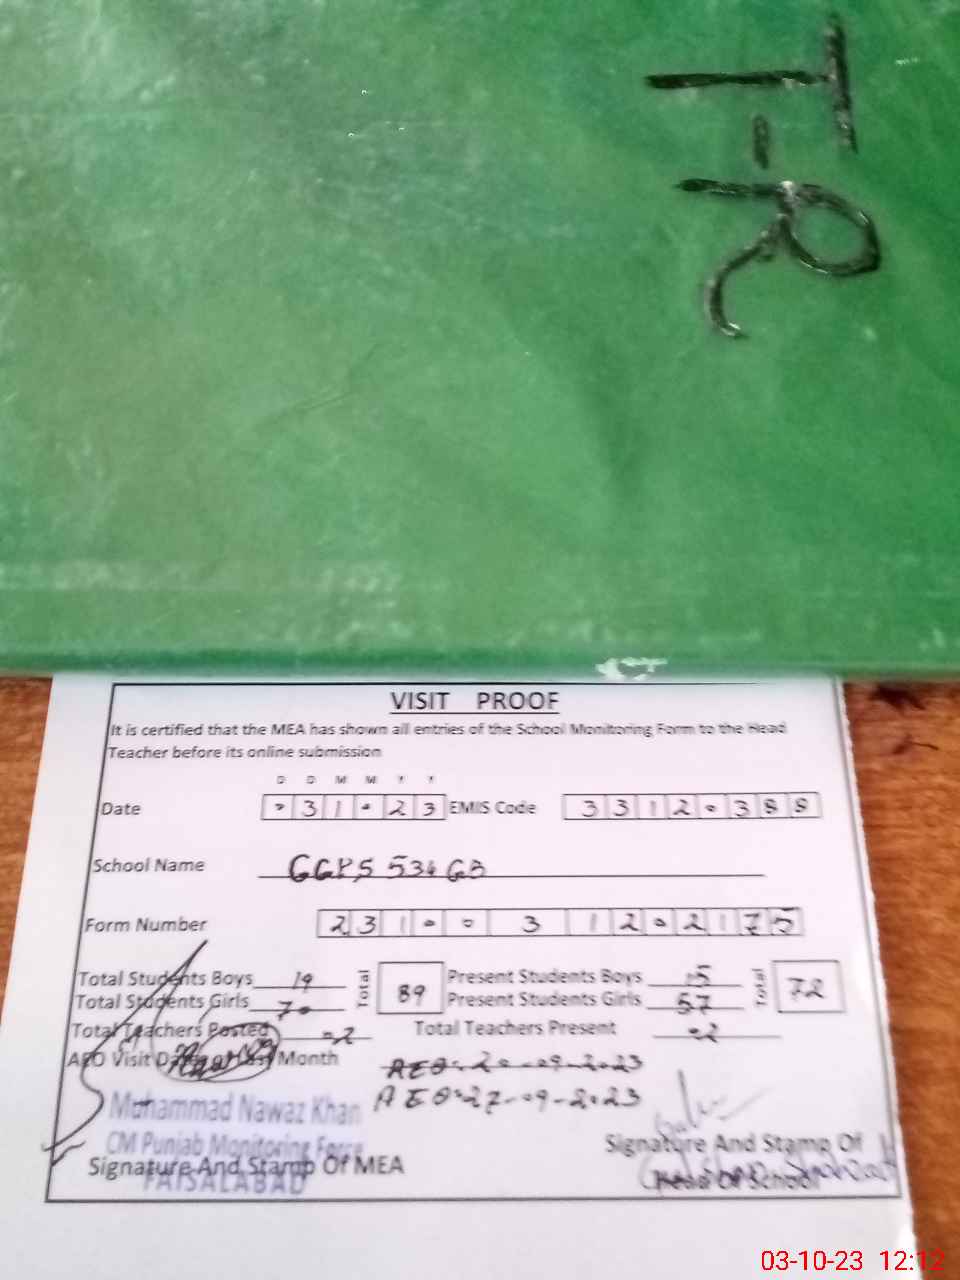 T-R
VISIT PROOF
It is certified that the MEA has shown all entries of the School Monitoring Form to the Head
Teacher before its online submission
D D M M Y Y
Date 0 3 1 0 2 3 EMIS Code 3 3 1 2 0 3 8 8
School Name GGPS 534 GB
Form Number 2 3 1 0 0 3 1 2 0 2 1 7 5
Total Students Boys 19 Total 89 Present Students Boys 15 Total 72
Total Students Girls 70 Present Students Girls 57
Total Teachers Posted 02 Total Teachers Present 02
AEO Visit Month AEO: 20-09-2023
AEO: 27-09-2023
Muhammad Nawaz Khan
CM Punjab Monitoring Force
FAISALABAD
Signature And Stamp Of MEA
Signature And Stamp Of
Head Of School
03-10-23 12:12